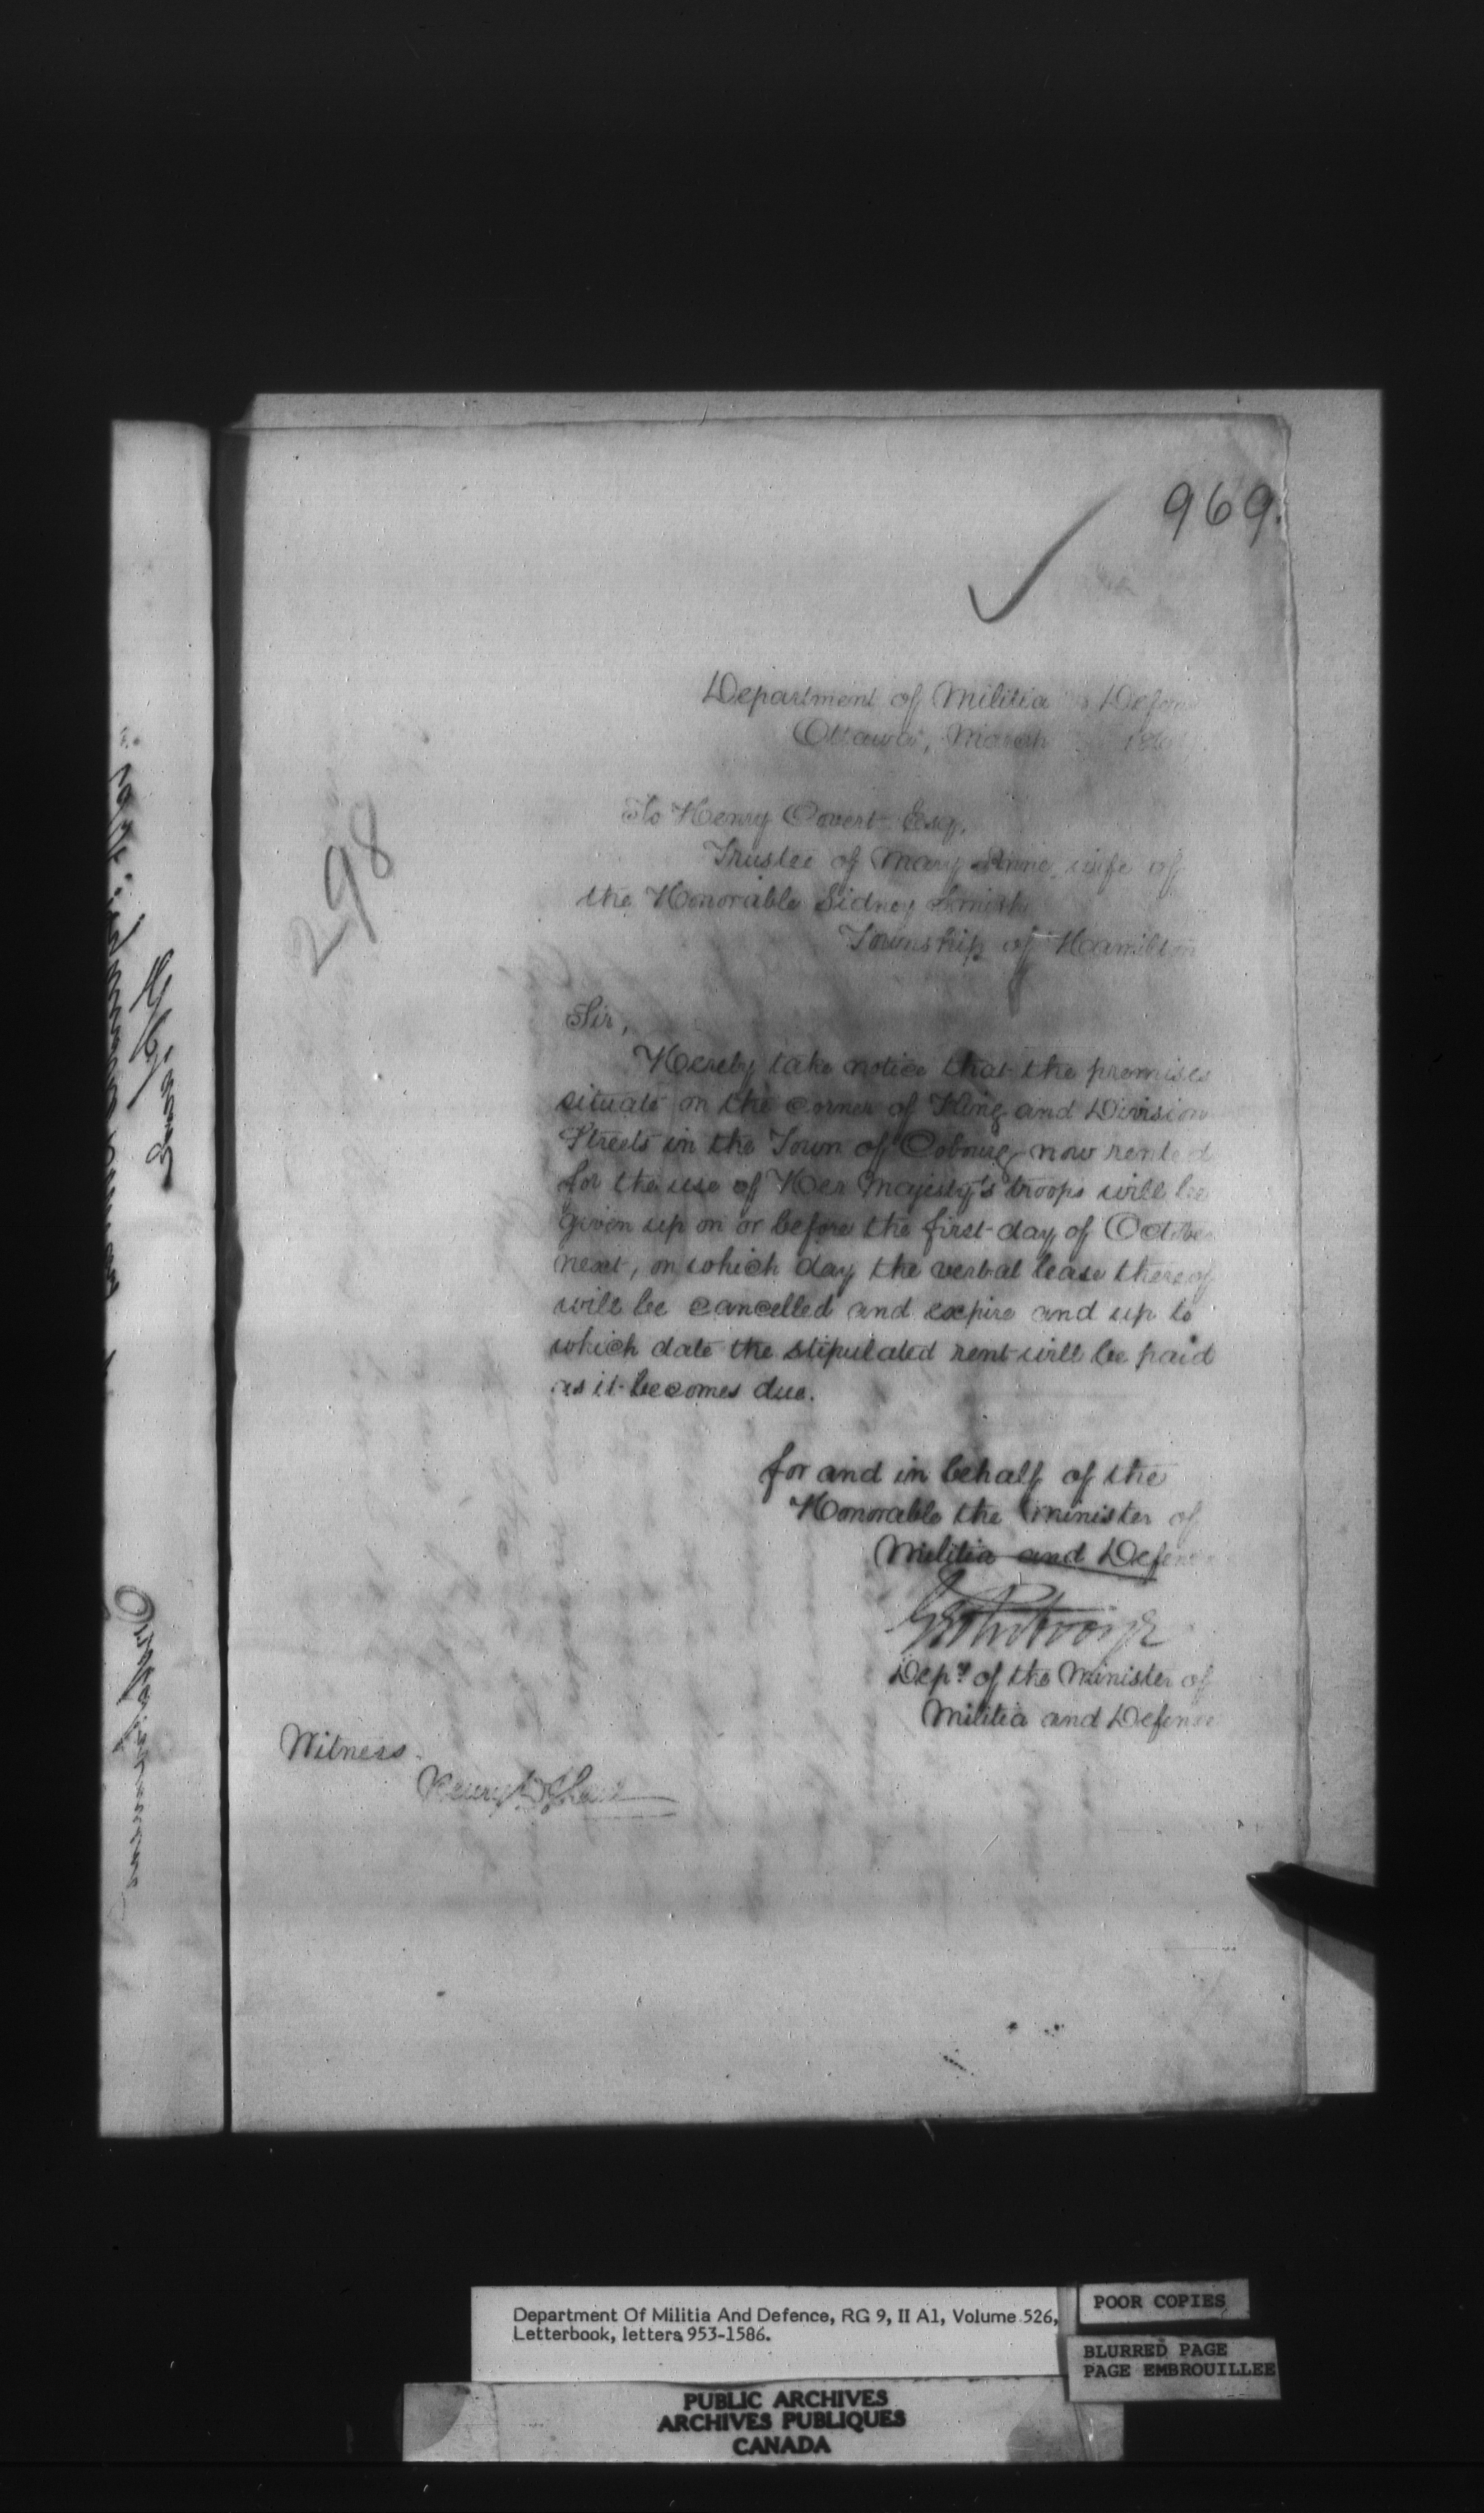 969.
298
Department of Militia Defen
Ottawa, March
To Henry Covert Esq.
Trustee of Mary Anne, wife of
the Honorable Sidney Smith
Township of Hamilton
Sir,
Hereby take notice that the premises
situate on the corner of King and Division
Streets in the Town of Cobourg now rented
for the use of Her Majesty's troops will be
given up on or before the first day of October
next, on which day the verbal lease thereof
will be cancelled and expire and up to
which date the stipulated rent will be paid
as it becomes due.
for and in behalf of the
Honorable the Minister of
Militia and Defen
Depy of the Minister of
Militia and Defense
Witness
Henry
Department Of Militia And Defence, RG 9, II A1, Volume 526,
Letterbook, letters 953-1586.
POOR COPIES
BLURRED PAGE
PAGE EMBROUILLEE
PUBLIC ARCHIVES
ARCHIVES PUBLIQUES
CANADA